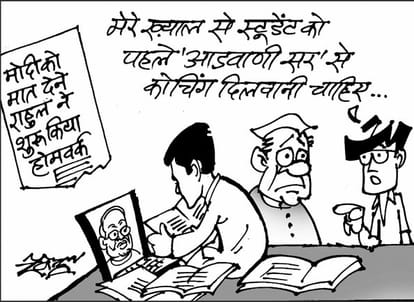 मेरे ख्याल से स्टूडेंट को
पहले 'आडवाणी सर' से
कोचिंग दिलवानी चाहिए...
मोदी को
मात देने
राहुल ने
शुरू किया
होमवर्क